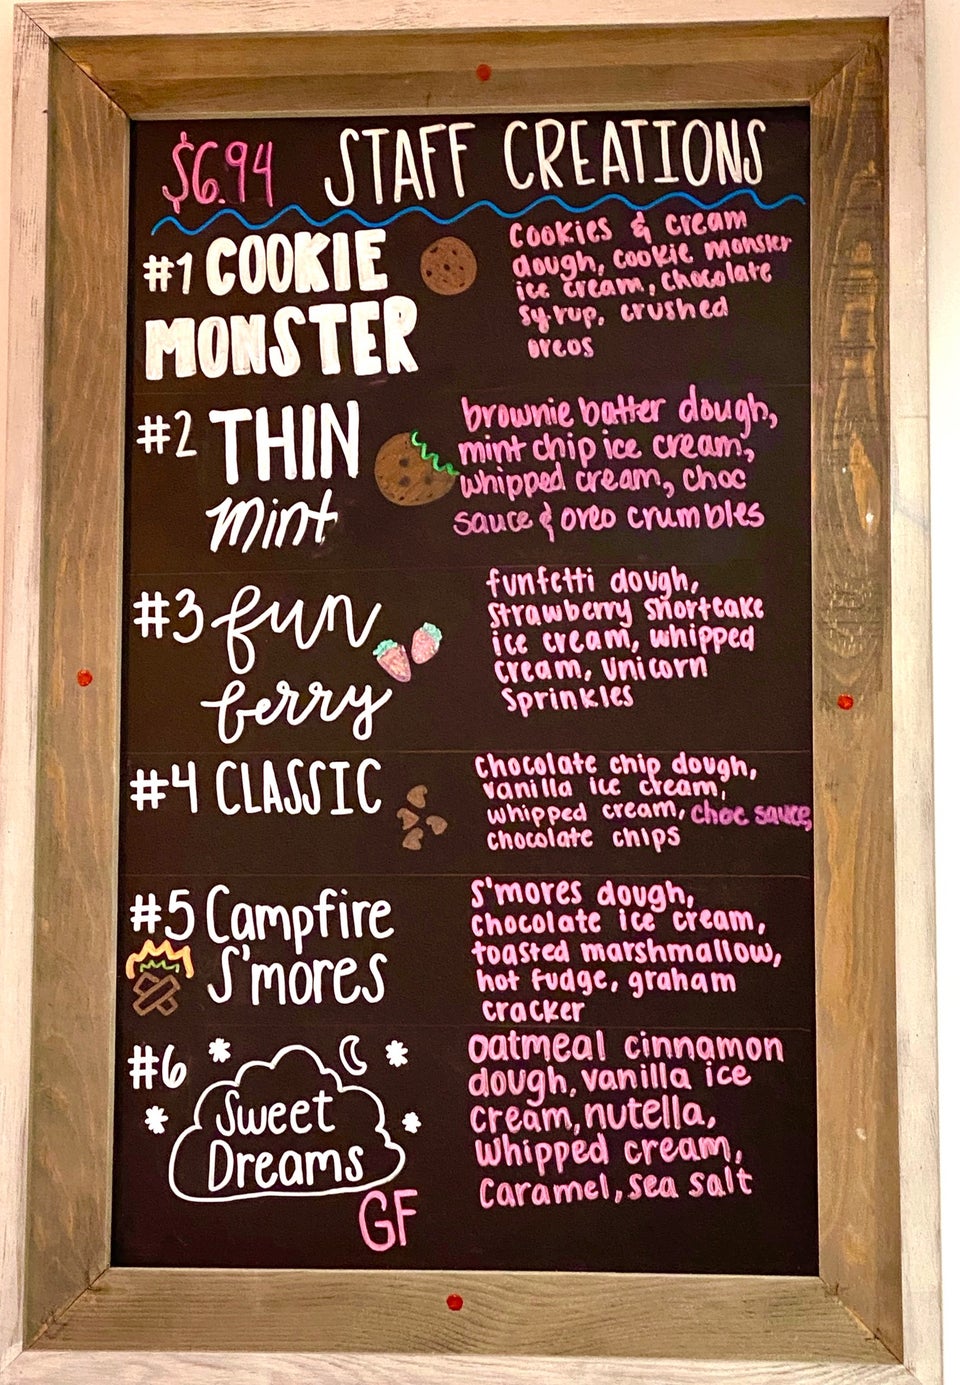 $6.94 STAFF CREATIONS
#1 COOKIE
MONSTER
cookies & cream
dough, cookie monster
ice cream, chocolate
syrup, crushed
oreos
#2 THIN
mint
brownie batter dough,
mint chip ice cream,
whipped cream, choc
sauce & oreo crumbles
#3 fun
berry
funfetti dough,
strawberry shortcake
ice cream, whipped
cream, unicorn
sprinkles
#4 CLASSIC
chocolate chip dough,
vanilla ice cream,
whipped cream, choc sauce,
chocolate chips
#5 Campfire
S'mores
s'mores dough,
chocolate ice cream,
toasted marshmallow,
hot fudge, graham
cracker
#6
Sweet
Dreams
GF
oatmeal cinnamon
dough, vanilla ice
cream, nutella,
whipped cream,
caramel, sea salt